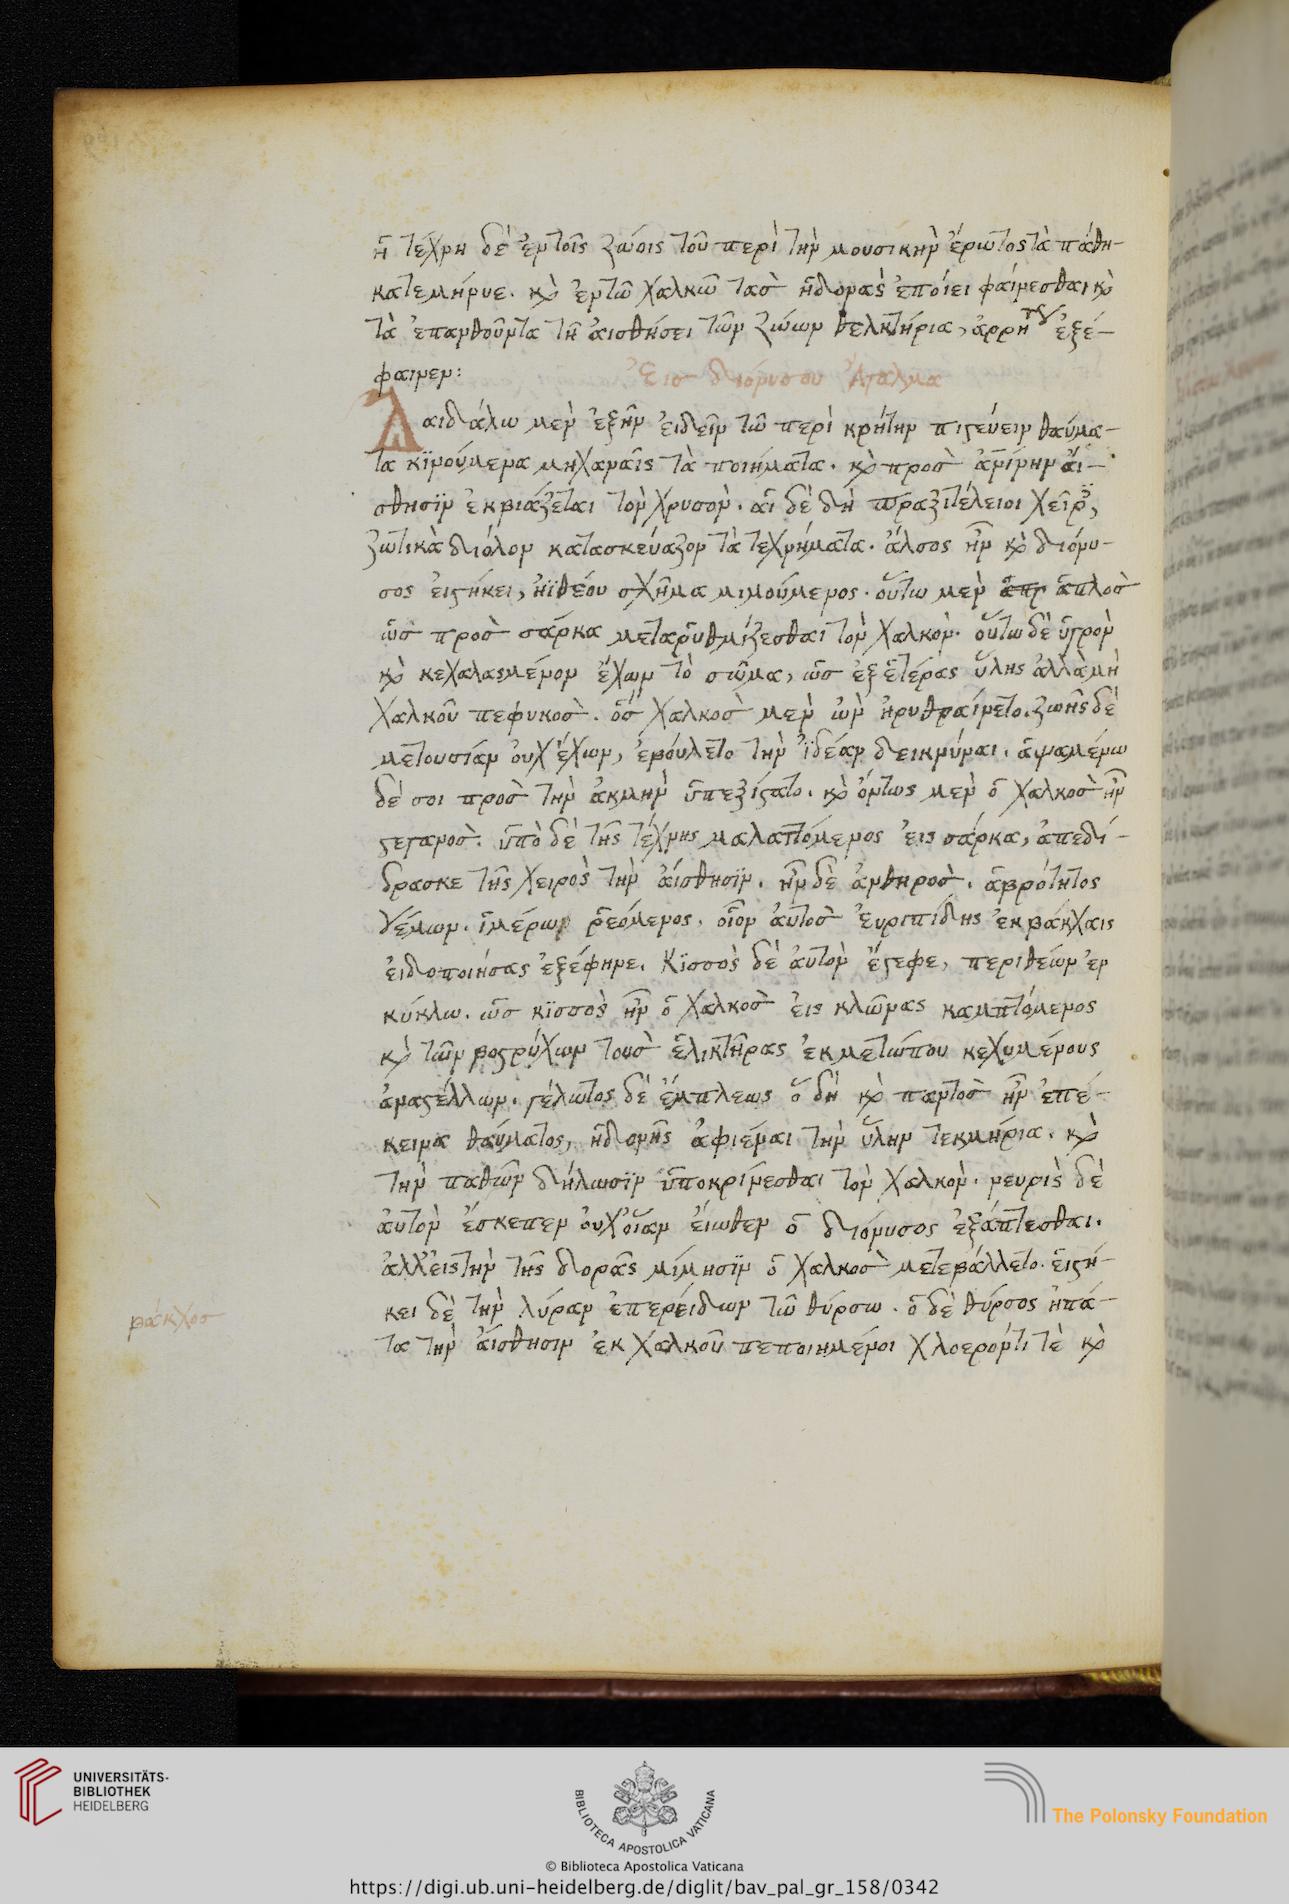 ἡ τέχνη δὲ ἐν τοῖς ζώοις τοῦ περὶ τὴν μουσικὴν ἔρωτος τὰ πάθη
κατεμήνυε. καὶ ἐν τῶ χαλκῶ τὰσ ἡδονὰς ἐποίει φαίνεσθαι καὶ
τὰ ἐπανθοῦντα τῆ ἀισθήσει τῶν ζώων θελκτήρια, ἀρρήτως ἐξέ-
φαινεν:
Ἐισ διόνυσου Ἄγαλμα
Δαιδάλω μὲν ἐξῆν ἐιδεῖν τῶ περὶ κρήτην πιστεύειν θαύμα-
τα κϊνούμενα μηχαναῖς τὰ ποιήματα. καὶ προσ ἀνθρωπίνην ἄι-
σθησϊν ἐκβιάζεται τὸν χρυσὸν. ἁι δὲ δὴ πραξιτέλειοι χεῖρες,
ζωτικὰ διόλον κατασκεύαζον τὰ τεχνήματα. ἄλσος ἦν καὶ διόνυ-
σος ἑιστήκει, ἠϊθέου σχῆμα μιμούμενος. οὕτω μὲν ἁπλὸσ
ὡσ προσ σάρκα μεταρρυθμίζεσθαι τὸν χαλκὸν. οὕτω δὲ ὑγρὸν
καὶ κεχαλασμένον ἔχων τὸ σῶμα, ὡσ ἐξ ἑτέρας ὕλης ἀλλὰ μὴ
χαλκοῦ πεφυκοσ. ὃσ χαλκοσ μὲν ὢν ἠρυθραίνετο. ζωῆς δὲ
μετουσίαν ὀυχ ἔχων, ἐβούλετο τὴν ἰδέαν δεικνύναι. ἁψαμένω
δέ σοι προσ τὴν ἀκμὴν ὑπεξίστατο. καὶ ὄντως μὲν ὁ χαλκοσ ἦν
στεγανοσ. ὑπὸ δὲ τῆς τέχνης μαλαττόμενος ἐις σάρκα, ἀπεδί-
δρασκε τῆς χειρὸς τὴν ἄισθησϊν. ἦν δὲ ἀνθηροσ. ἁβρότητος
γέμων. ἱμέρω ῥεόμενος. οἷον ἀυτοσ Ἐυριπίδης ἐκ βάκχαις
ἐιδοποιήσας ἐξέφηνε. Κϊσσὸς δὲ ἀυτὸν ἔστεφε, περιθέων ἐν
κύκλω. ὡσ κϊσσὸς ἦν ὁ χαλκοσ ἐις κλῶνας καμπτόμενος
καὶ τῶν βοστρύχων τουσ ἑλικτῆρας ἐκ μετώπου κεχυμένους
ἀναστέλλων. γέλωτος δὲ ἔμπλεως ὃ δὴ καὶ παντοσ ἦν ἐπέ-
κεινα θαύματος, ἡδονῆς ἀφιέναι τὴν ὕλην τεκμήρια. καὶ
τὴν παθῶν δήλωσϊν ὑποκρίνεσθαι τὸν χαλκὸν. νευρὶς δὲ
ἀυτὸν ἔσκεπεν ὀυχ οἵαν ἔιωθεν ὁ διόνυσος ἐξάπτεσθαι.
ἀλλ' ἐις τὴν τῆς δορᾶς μίμησϊν ὁ χαλκοσ μετεβάλλετο. ἑιστή-
κει δὲ τὴν λύραν ἐπερείδων τῶ θύρσω. ὁ δὲ θύρσος ἠπά-
τα τὴν ἄισθησιν ἐκ χαλκοῦ πεποιημένοι χλοερόντι τὲ καὶ
βάκχοσ
UNIVERSITÄTS-
BIBLIOTHEK
HEIDELBERG
BIBLIOTECA APOSTOLICA VATICANA
The Polonsky Foundation
© Biblioteca Apostolica Vaticana
https://digi.ub.uni-heidelberg.de/diglit/bav_pal_gr_158/0342